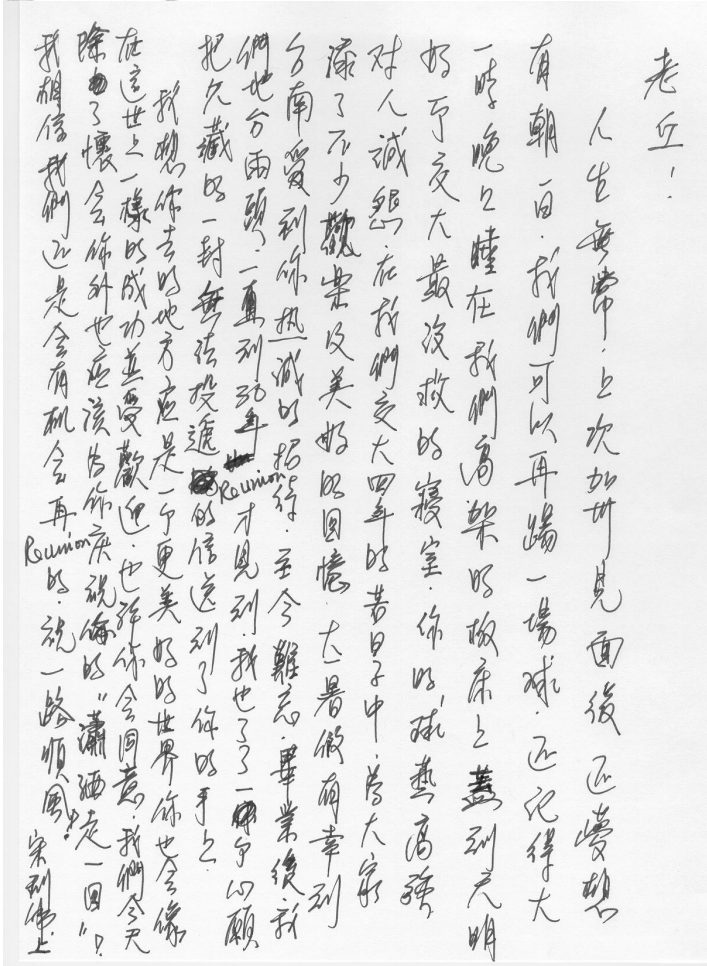 老丘：
人生無常．上次加州見面後還夢想
有朝一日．我們可以再踢一場球．还記得大
一時晚上睡在我們高架的板床上蓋到天明
好 交大最没救的寢室．你的球藝高強
对人誠懇．在我們交大四年的苦日子中．為大家
添了不少歡樂及美好的回憶．大一暑假有幸到
台南受到你热誠的招待．至今難忘．畢業後．我
們地分兩頭．一直到30年 Reunion 才見到．我也了了一个心願
把久藏的一封無法投遞的信送到了你的手上．
我想你去的地方应是一个更美好的世界你也会像
在這世上一樣的成功並受歡迎．也許你会同意．我們今天
除了懷念你外也应該為你慶祝倫的“瀟洒走一回”！
我相信我們还是会有机会再 Reunion 的．祝一路順風！
宋 上